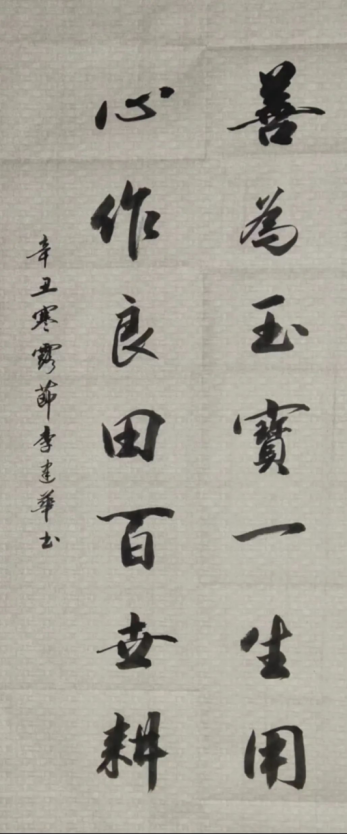 善為玉寶一生用
心作良田百世耕
辛丑寒露節李建華书